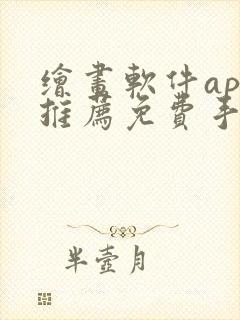 繪畫軟件ap
推薦免費手
半壺月